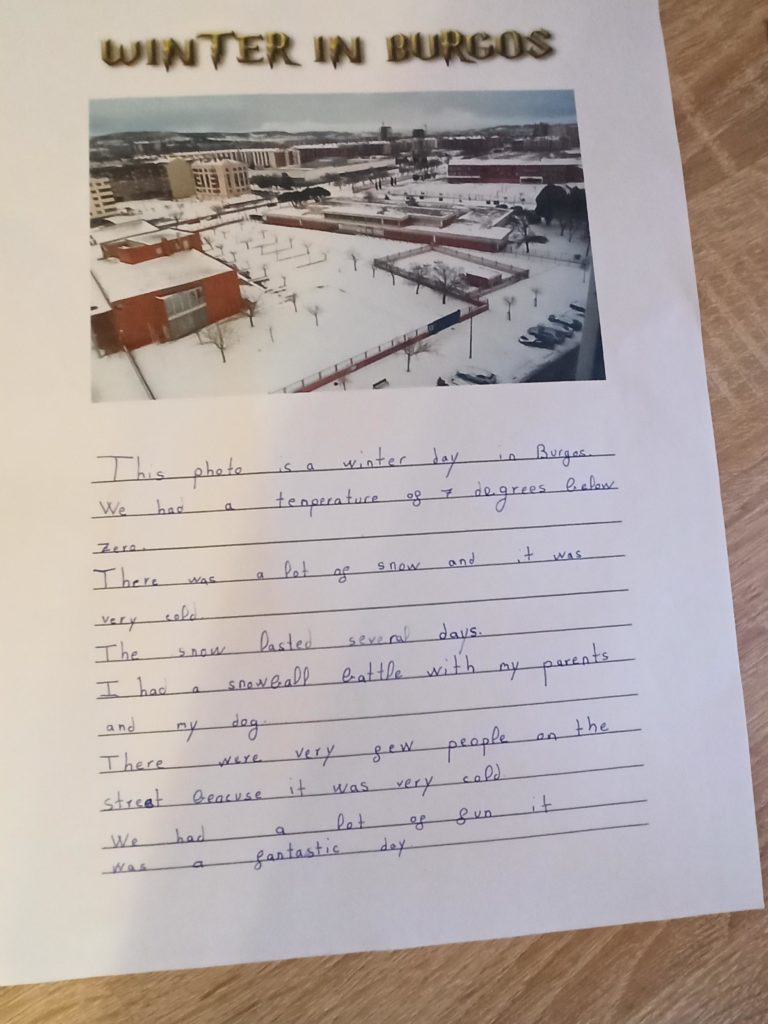 WINTER IN BURGOS
This photo is a winter day in Burgos.
We had a tenperature of 7 degrees below
zero.
There was a lot of snow and it was
very cold.
The snow lasted several days.
I had a snowball battle with my parents
and my dog.
There were very few people on the
street beacuse it was very cold
We had a lot of fun it
was a fantastic day